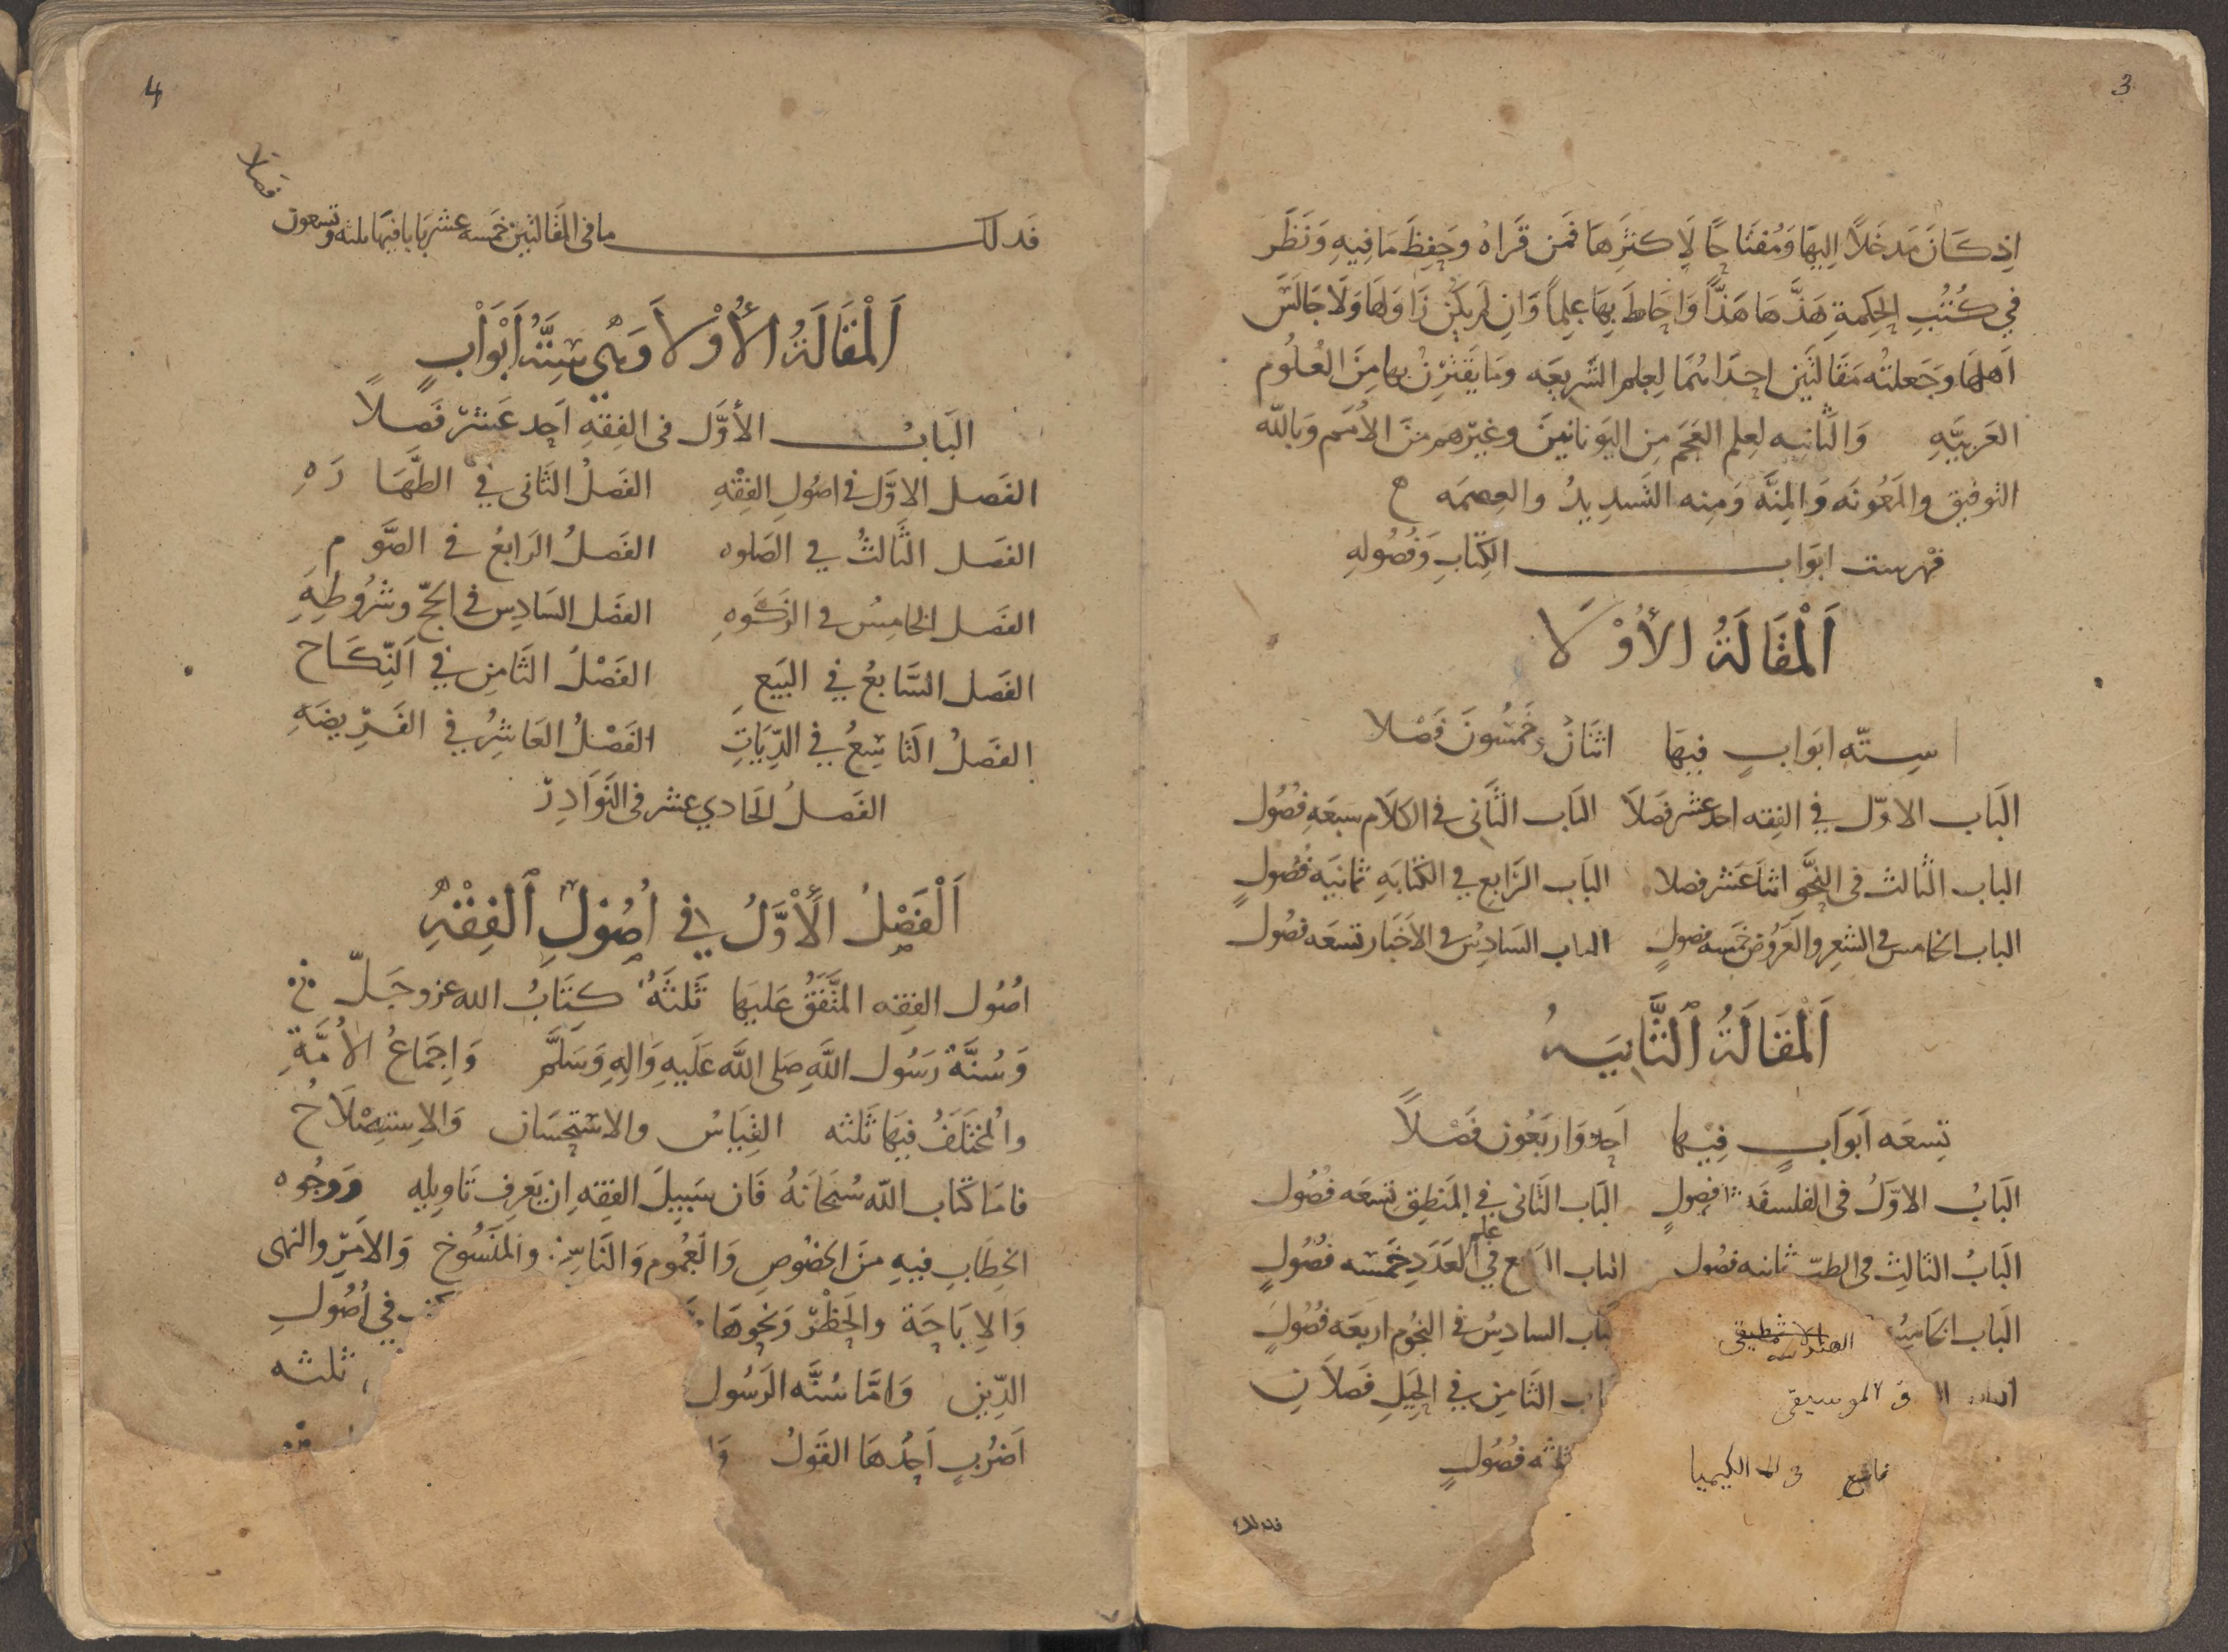 3
اذ كَانَ مَدخَلاً اِليهَا وَمُفتَاحًا لِاَكثَرِهَا فَمَن قَراهُ وحَفِظَ مَا فِيهِ وَنَظَر
في كُتُبِ الحِكمةِ هَذَّهَا هَذًّا وَاحَاطَ بِهَا عِلماً وَان لَم يَكُن زَاوَلهَا وَلَا جَالَسَ
اَهلهَا وجَعلتُه مَقَالتَين احدَاهُمَا لِعِلم الشَّرِيعَه وَمَا يَقتَرِنُ بها مِنَ العُلُوم
العَربيَّهِ وَالثَّانيه لعِلم العَجَم مِن اليَونانيّينَ وغيرهم منَ الاُمَم وَبالله
التوفيق والمَعُونَه وَالمِنَّه وَمِنه التَّسدِيدُ والعِصمَه
فهرست ابوَاب الكِتَابِ وَفُصُولهِ
اَلْمَقَالَةُ الأُوْلَا
سِتّه ابوَابٍ فيهَا اثنَانُ وخَمسُونَ فَصْلا
البَاب الاوّل في الفِقه احد عشر فصَلاً البَاب الثَّانى في الكلاَم سَبعَه فصُول
الباب الثالث في النحَّو اثنا عَشر فصلا البَاب الرَّابع في الكتَابَهِ ثمانيَه فصُولٍ
الباب الخامس في الشعِر والعَرُوض خمَسه فصولٍ الباب السَادِسُ في الاَخبَار تسعَه فصُول
اَلْمَقَالَةُ اَلثَّانِيَهُ
تسعَه اَبوَابٍ فِيهَا اَحد وَاربَعُون فَصْلاً
البَابُ الاوّلُ في الفلسفَه ثلثه فصولٍ البَاب الثَانى في المَنطِق تسعَه فصُول
البَابُ الثالِث في الطبّ ثمانيه فصُول الباب الرابع في علم العَدَدِ خَمسَه فصُولٍ
البَاب الخَامِسُ الارثمطيقى الهندسه البَاب السادِسُ في النجُوم اربعَه فصُولٍ
الباب في الموسيقى الباب الثَامِن في الحِيَلِ فَصلاَنِ
التاسع في الكيميا ثلثه فصُولٍ
فذلك
4
فذلك ما في المَقَالتَين خمَسه عشر بَابا فيهَا ثلثه وتسعون
فصلا
اَلْمَقَالَةُ الأُوْلاَ وَهْيَ سِتَّةُ اَبْوَابٍ
البَابُ الأوَّل في الفِقهِ اَحد عَشر فَصلاً
الفَصل الاوّل في اصُولِ الفِقْهِ الفَصلُ الثَانى في الطَّهَارَهِ
الفَصل الثَّالثُ في الصَلوه الفَصلُ الرَابعُ في الصَّوم
الفَصل الخامِسُ في الزكَوهِ الفصَل السَادِس في الحَجّ وشرُوطِهِ
الفَصل السَّابعُ في البَيَع الفَصْلُ الثَامِن في اَلنِّكَاح
الفَصلُ التَاسِعُ في الدِّيَاتِ الفَصْلُ العَاشِرُ في الفَرِيضَهِ
الفَصلُ الحَادي عشر في النَوَادِرْ
اَلْفَصْلُ الأَوَّلُ في اُصُوْلِ اَلْفِقْهِ
اصُول الفِقه المتَّفَقُ عَليهَا ثَلثَهُ كتَابُ الله عز وجَلّ
وَسُنَّة رَسُول اللَّهِ صَلى اللَّه عَلَيهِ وَالِهِ وَسَلَّم وَاِجمَاعُ الاُمَّةِ
والمُختَلَفُ فيهَا ثَلثه القِيَاسُ والاستِحسَان وَالاِستِصْلاَحُ
فامَا كتَاب اللّه سُبحَانَهُ فَان سَبِيلَ الفِقهِ ان يَعرِف تَاوِيلِهِ وَوجُوه
الخِطَابِ فيهِ مِنَ الخصُوصِ وَالعُمُوم وَالنَاسِخ والمَنسُوخ وَالاَمرِ والنهى
وَالاِبَاحَة والحَظْر وَنحوهَا في اُصُولِ
الدّين وَامَّا سُنَّه الرَسُول ثلثه
اَضرُبٍ اَحدُهَا القَولُ